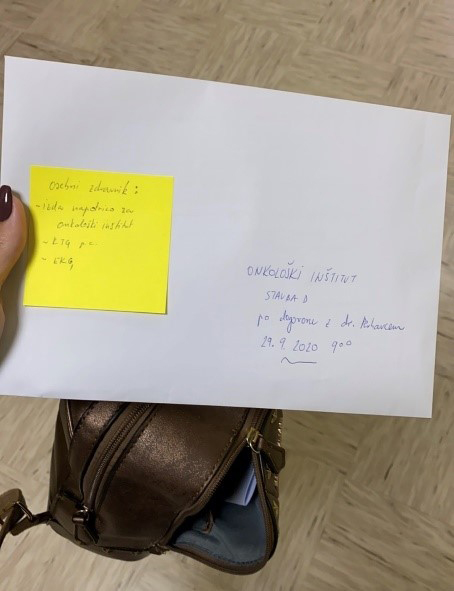 osebni zdravnik:
- izda napotnico za
onkološki institut
- RTG p.c.
- EKG
ONKOLOŠKI INŠTITUT
STAVBA D
po dogovoru z dr.
29. 9. 2020 9⁰⁰